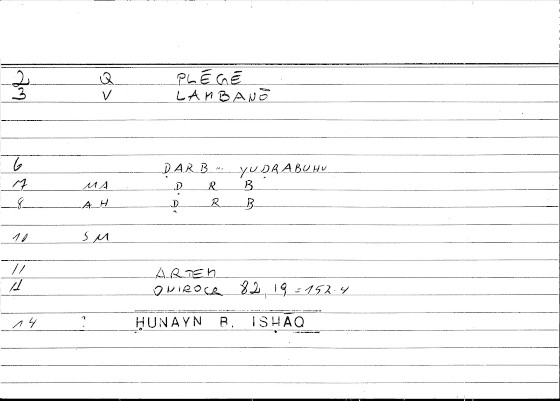 2 Q PLĒGĒ
3 V LAMBANŌ
6 ḌARB .. YUḌRABUHU
7 MA Ḍ R B
8 AH Ḍ R B
10 SM
11 ARTEM
12 ONIROCR 82, 19 = 152.4
14 : ḤUNAYN B. ISḤĀQ